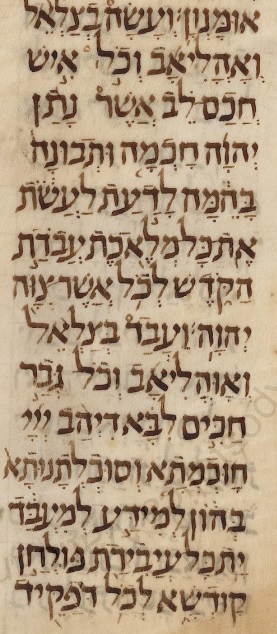 אומנון ועשה בצלאל
ואהליאב וכל איש
חכם לב אשר נתן
יהוה חכמה ותבונה
בהמה לדעת לעשת
את כל מלאכת עבדת
הקדש לכל אשר צוה
יהוה ועבד בצלאל
ואהליאב וכל גבר
חכים לבא דיהב ייי
חוכמתא וסוכלתנותא
בהון למידע למעבד
ית כל עיבידת פולחן
קודשא לכל דפקיד